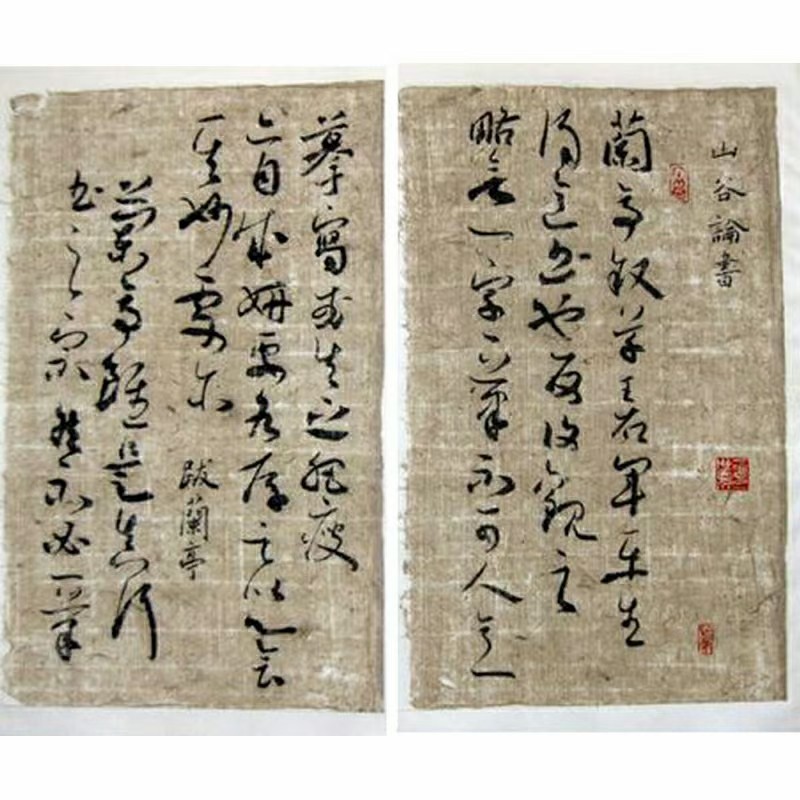 山谷論書
蘭亭叙草王右軍平生
得意书也反復觀之
略無一字一筆不可人意
摹寫或失之肥瘦
亦自成妍要各存之以心会
其妙處尔
跋蘭亭
蘭亭雖是真行
书之宗然不必一筆